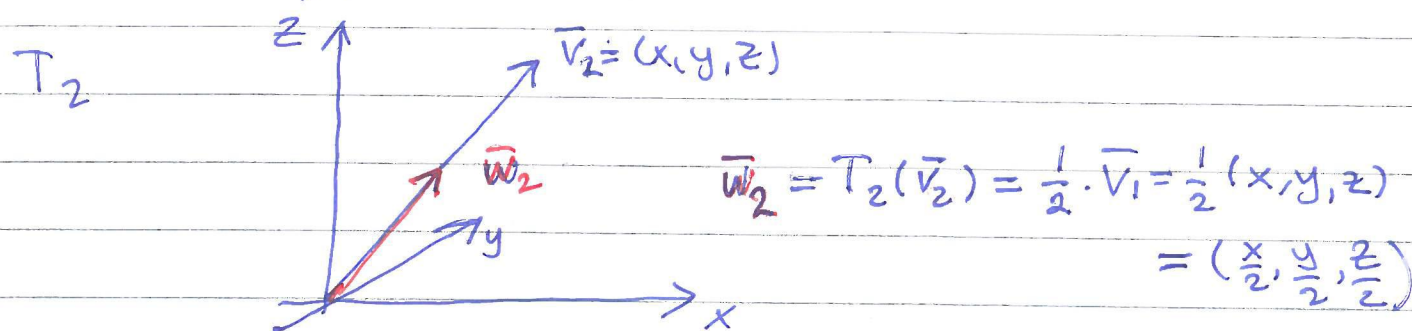 T₂
z
v̅₂ = (x, y, z)
w̅₂
y
x
w̅₂ = T₂(v̅₂) = ½ · v̅₁ = ½ (x, y, z)
= (x/2, y/2, z/2)